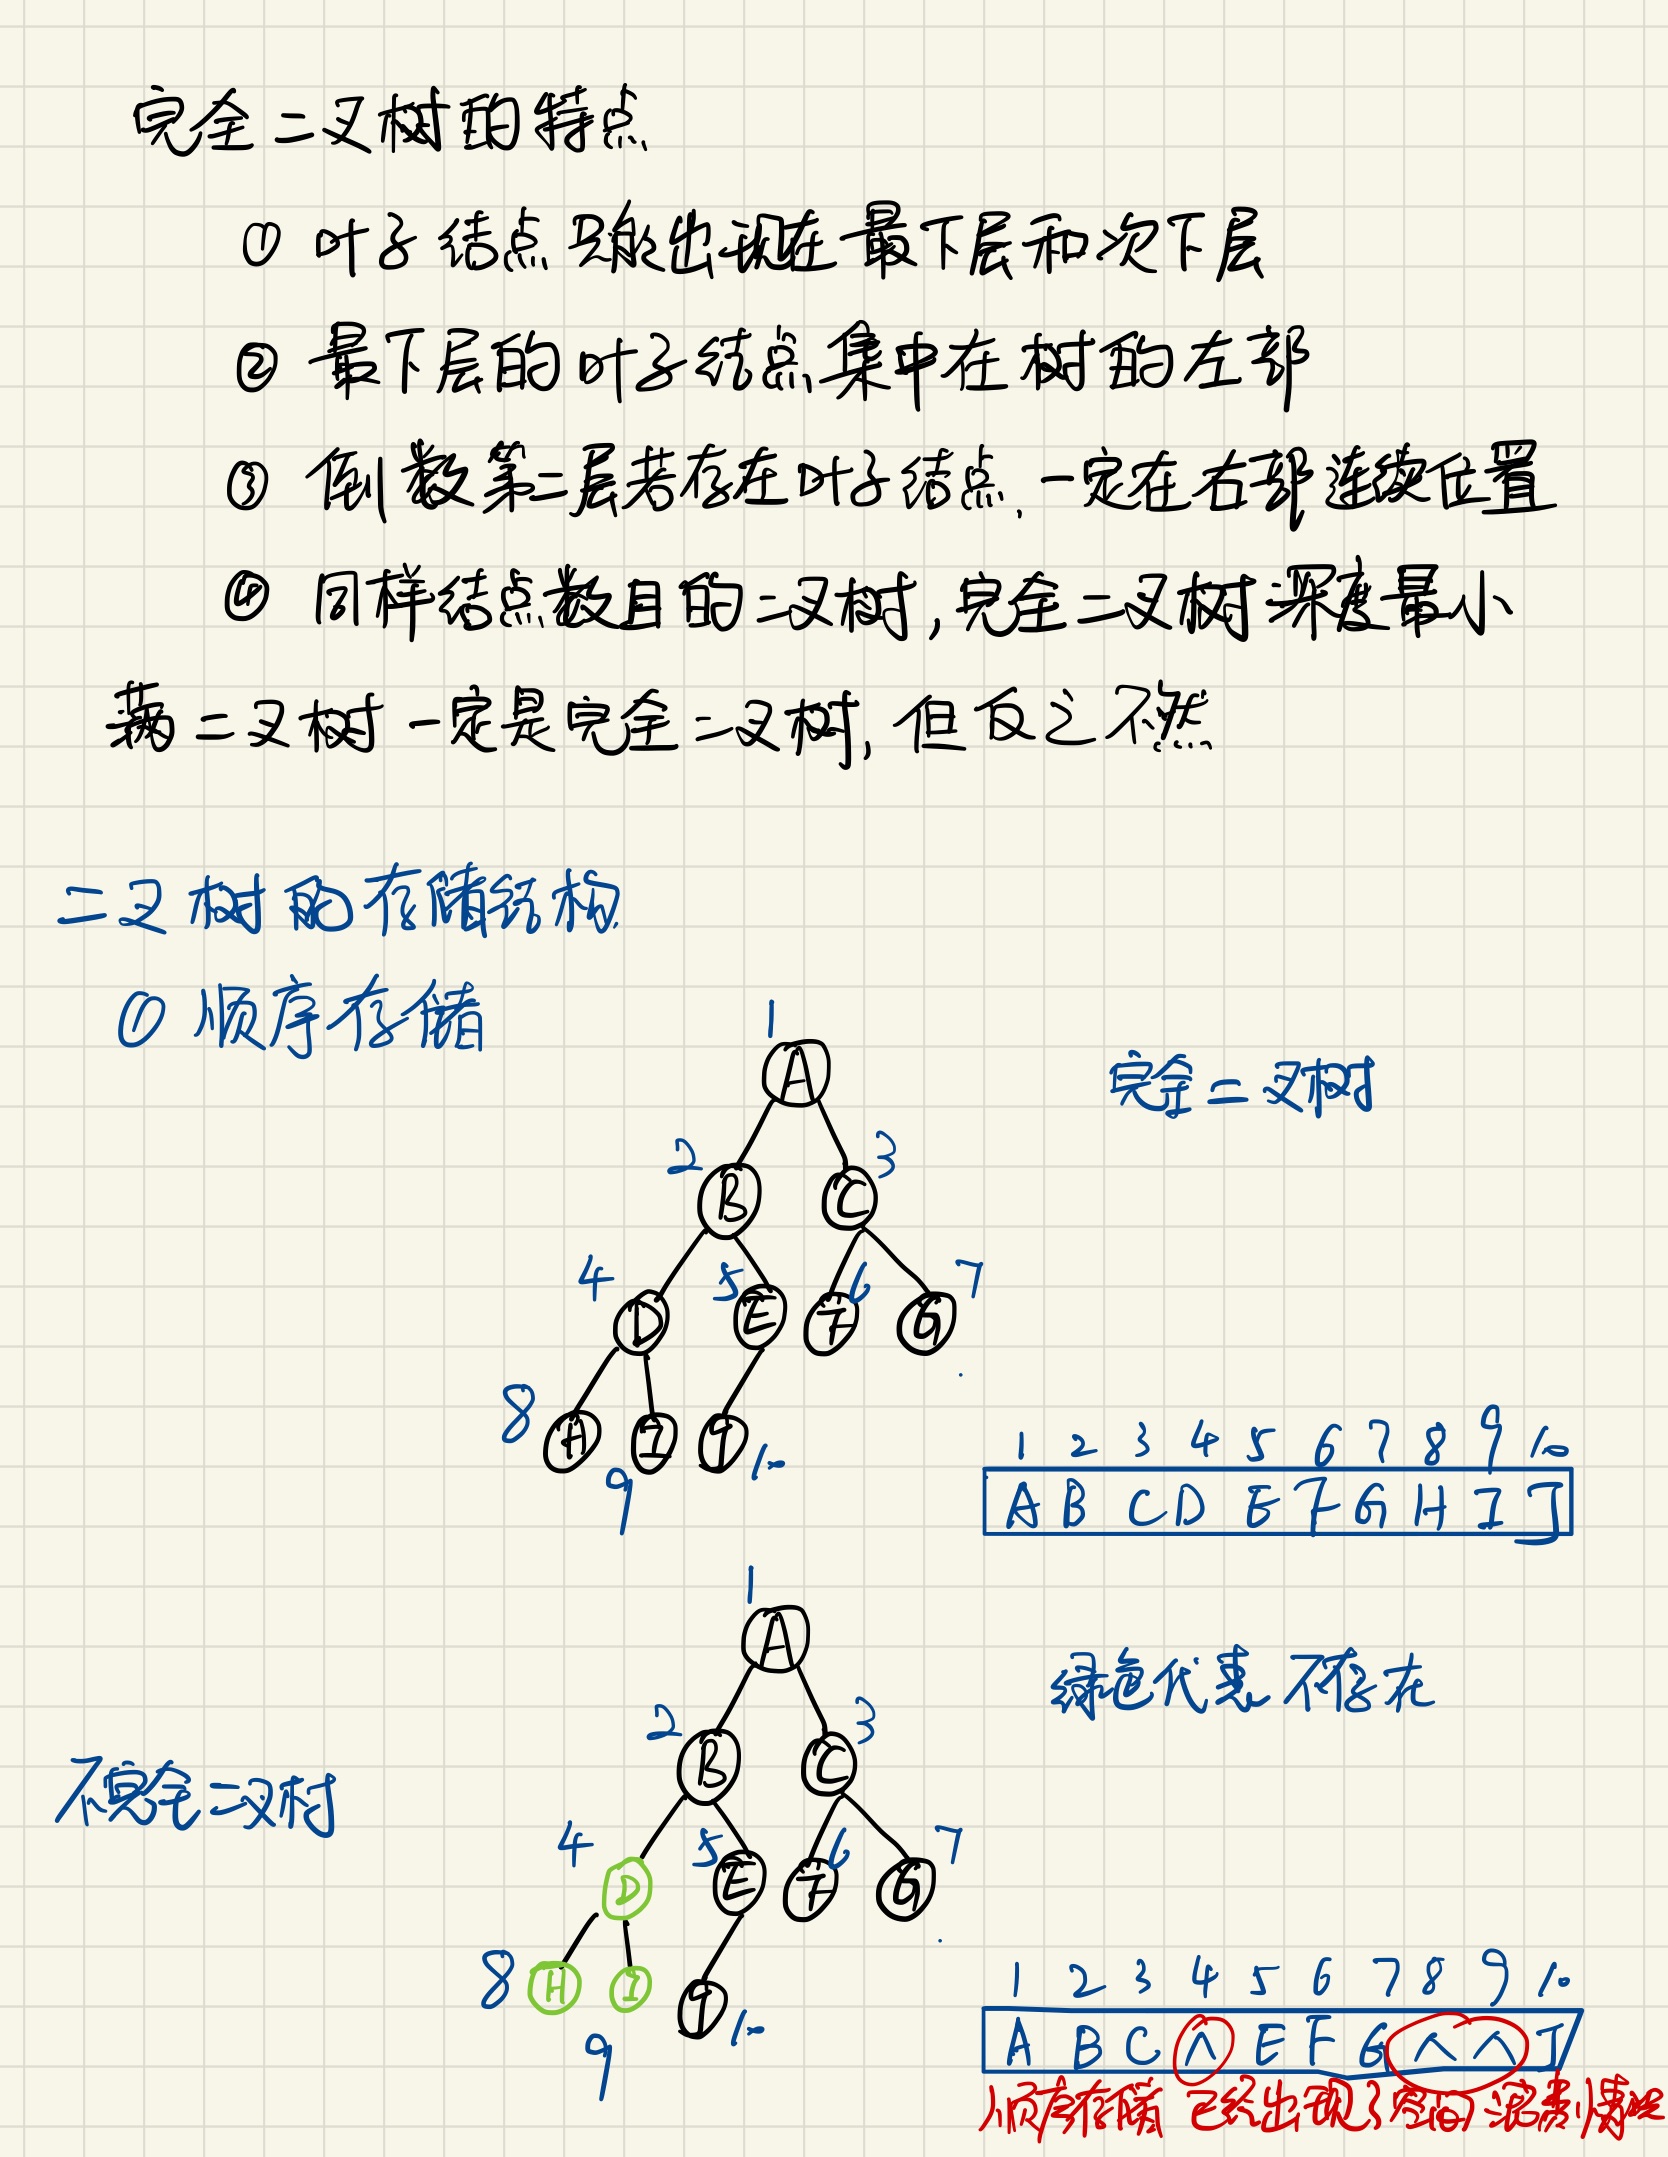 完全二叉树的特点
① 叶子结点只能出现在最下层和次下层
② 最下层的叶子结点集中在树的左部
③ 倒数第二层若存在叶子结点,一定在右部连续位置
④ 同样结点数目的二叉树,完全二叉树深度最小
满二叉树一定是完全二叉树,但反之不然
二叉树的存储结构
① 顺序存储
1
A
完全二叉树
2 3
B C
4 5 6 7
D E F G
8 H I J 10
9
1 2 3 4 5 6 7 8 9 10
A B C D E F G H I J
1
A
绿色代表不存在
2 3
B C
不完全二叉树
4 5 6 7
D E F G
8 H I J 10
9
1 2 3 4 5 6 7 8 9 10
A B C ^ E F G ^ ^ J
顺序存储 已经出现了空间浪费情况